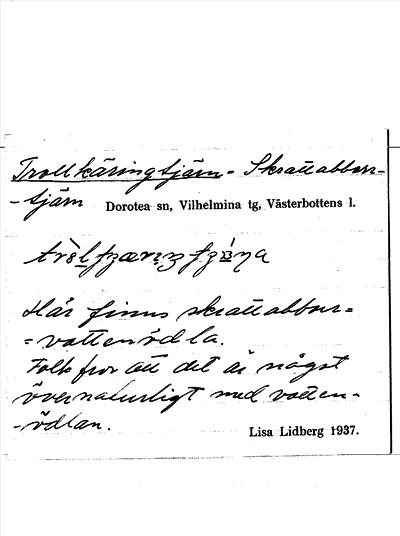 Trollkäringtjärn - Skrattabborr-
-tjärn Dorotea sn, Vilhelmina tg, Västerbottens l.
Här finns skrattabborr=
=vattenödla.
Folk tror att det är något
övernaturligt med vatten-
-ödlan.
Lisa Lidberg 1937.